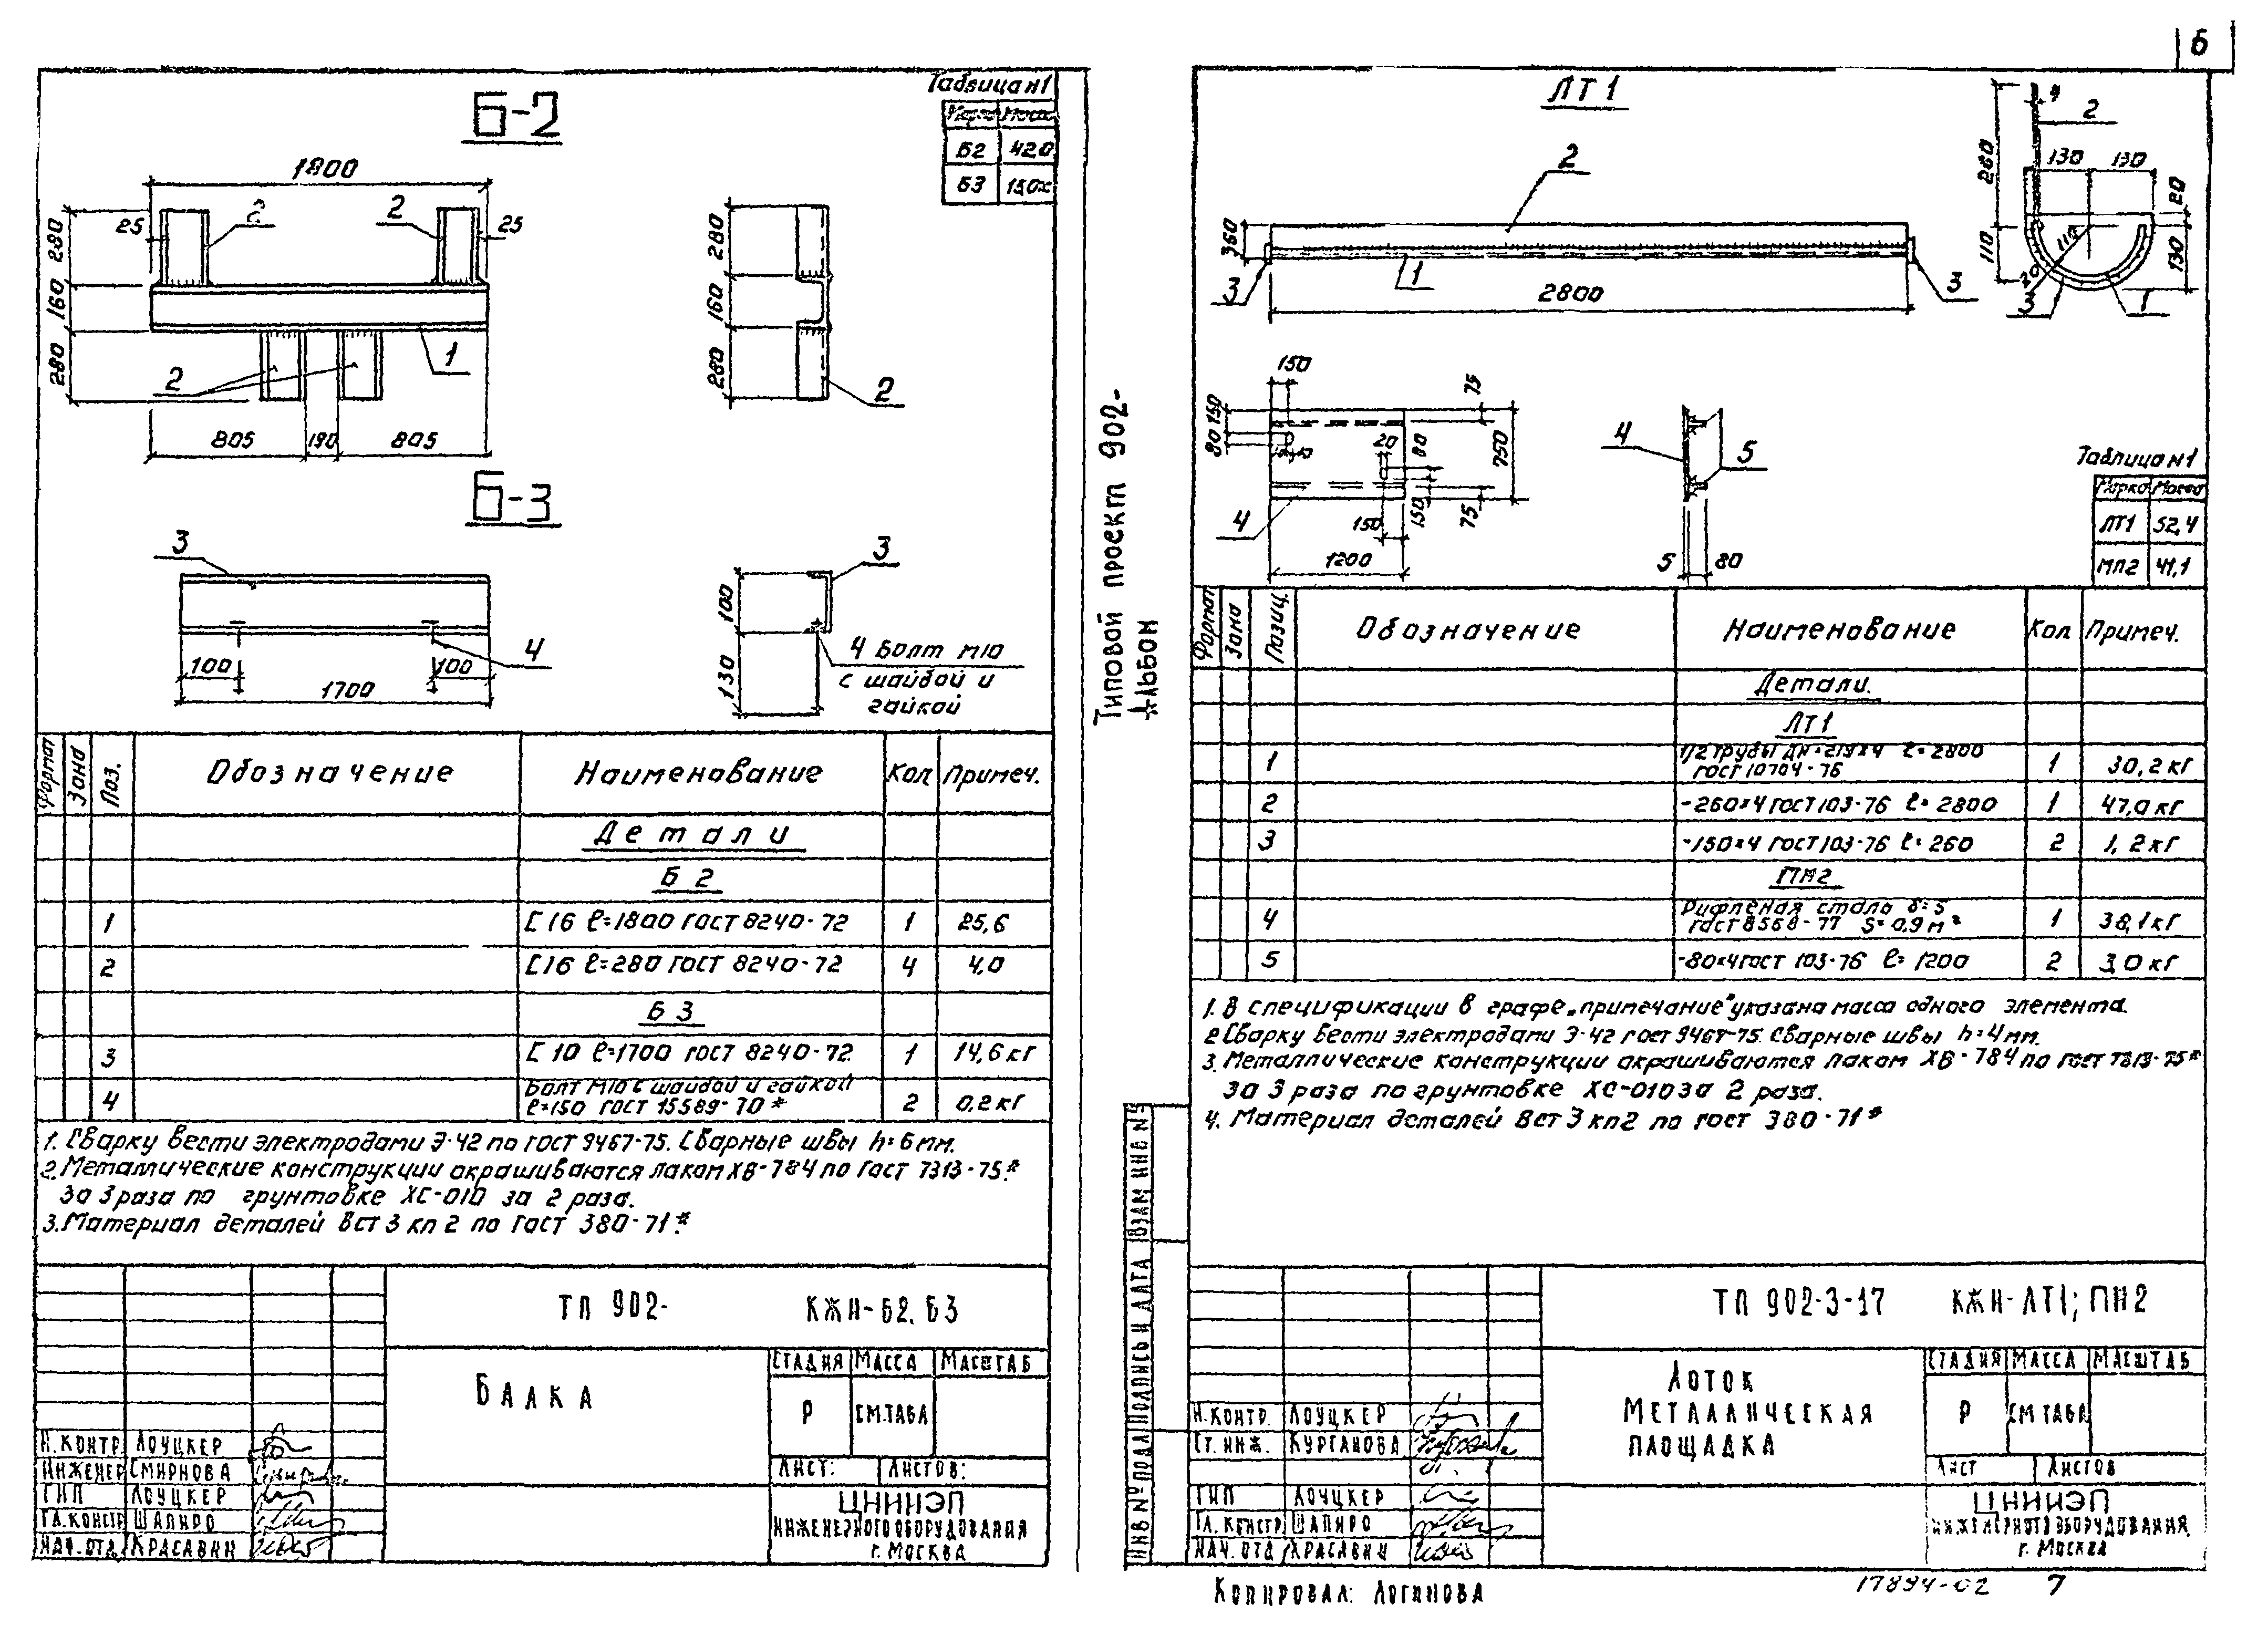 6
Б-2
Таблица №1
Марка Масса
Б2 42,0
Б3 15,0х
1800
25
2
2
25
280
160
280
2
1
805
190
805
280
160
280
2
Б-3
3
4
100
100
1700
3
100
130
4 Болт М10
с шайбой и
гайкой
Формат Зона Поз. Обозначение Наименование Кол Примеч.
Детали
Б 2
1 [ 16 ℓ=1800 ГОСТ 8240-72 1 25,6
2 [ 16 ℓ=280 ГОСТ 8240-72 4 4,0
Б 3
3 [ 10 ℓ=1700 ГОСТ 8240-72 1 14,6 кг
Болт М10 с шайбой и гайкой
4 ℓ=150 ГОСТ 15589-70* 2 0,2 кг
1. Сварку вести электродами Э-42 по ГОСТ 9467-75. Сварные швы h=6мм.
2. Металлические конструкции окрашиваются лаком ХВ-784 по ГОСТ 7313-75*
за 3 раза по грунтовке ХС-010 за 2 раза.
3. Материал деталей Вст 3 кп 2 по ГОСТ 380-71*
ТП 902- КЖИ-Б2, Б3
Балка
Стадия Масса Масштаб
Р См.табл
Лист: Листов:
ЦНИИЭП
инженерного оборудования
г. Москва
Н.контр. Лоуцкер
Инженер Смирнова
ГИП Лоуцкер
Гл.констр Шапиро
Нач.отд Красавин
Типовой проект 902-
Альбом
ЛТ1
2
360
3
1
3
2800
4
2
260
130
130
20
110
110
130
3
1
150
150
80
75
20
80
750
150
150
75
4
1200
4
5
5
80
Таблица №1
Марка Масса
ЛТ1 52,4
МП2 41,1
Формат Зона Позиц. Обозначение Наименование Кол Примеч.
Детали.
ЛТ1
1/2 трубы Дн=219х4 ℓ=2800
1 ГОСТ 10704-76 1 30,2 кг
2 -260х4 ГОСТ 103-76 ℓ=2800 1 47,0 кг
3 -150х4 ГОСТ 103-76 ℓ=260 2 1,2 кг
ПМ2
Рифленая сталь δ=5
4 ГОСТ 8568-77 S=0,9 м² 1 38,1 кг
5 -80х4 ГОСТ 103-76 ℓ=1200 2 3,0 кг
1. В спецификации в графе „примечание" указана масса одного элемента.
2 Сварку вести электродами Э-42 ГОСТ 9467-75. Сварные швы h=4мм.
3. Металлические конструкции окрашиваются лаком ХВ-784 по ГОСТ 7313-75*
за 3 раза по грунтовке ХС-010 за 2 раза.
4. Материал деталей Вст 3 кп2 по ГОСТ 380-71*
Инв № подл Подпись и дата Взам инв №
ТП 902-3-17 КЖИ-ЛТ1; ПМ2
Лоток
Металлическая
площадка
Стадия Масса Масштаб
Р См.табл
Лист Листов
ЦНИИЭП
инженерного оборудования
г. Москва
Н.контр. Лоуцкер
Ст. инж. Курганова
ГИП Лоуцкер
Гл. констр. Шапиро
Нач. отд Красавин
Копировал: Логинова
17894-02 7